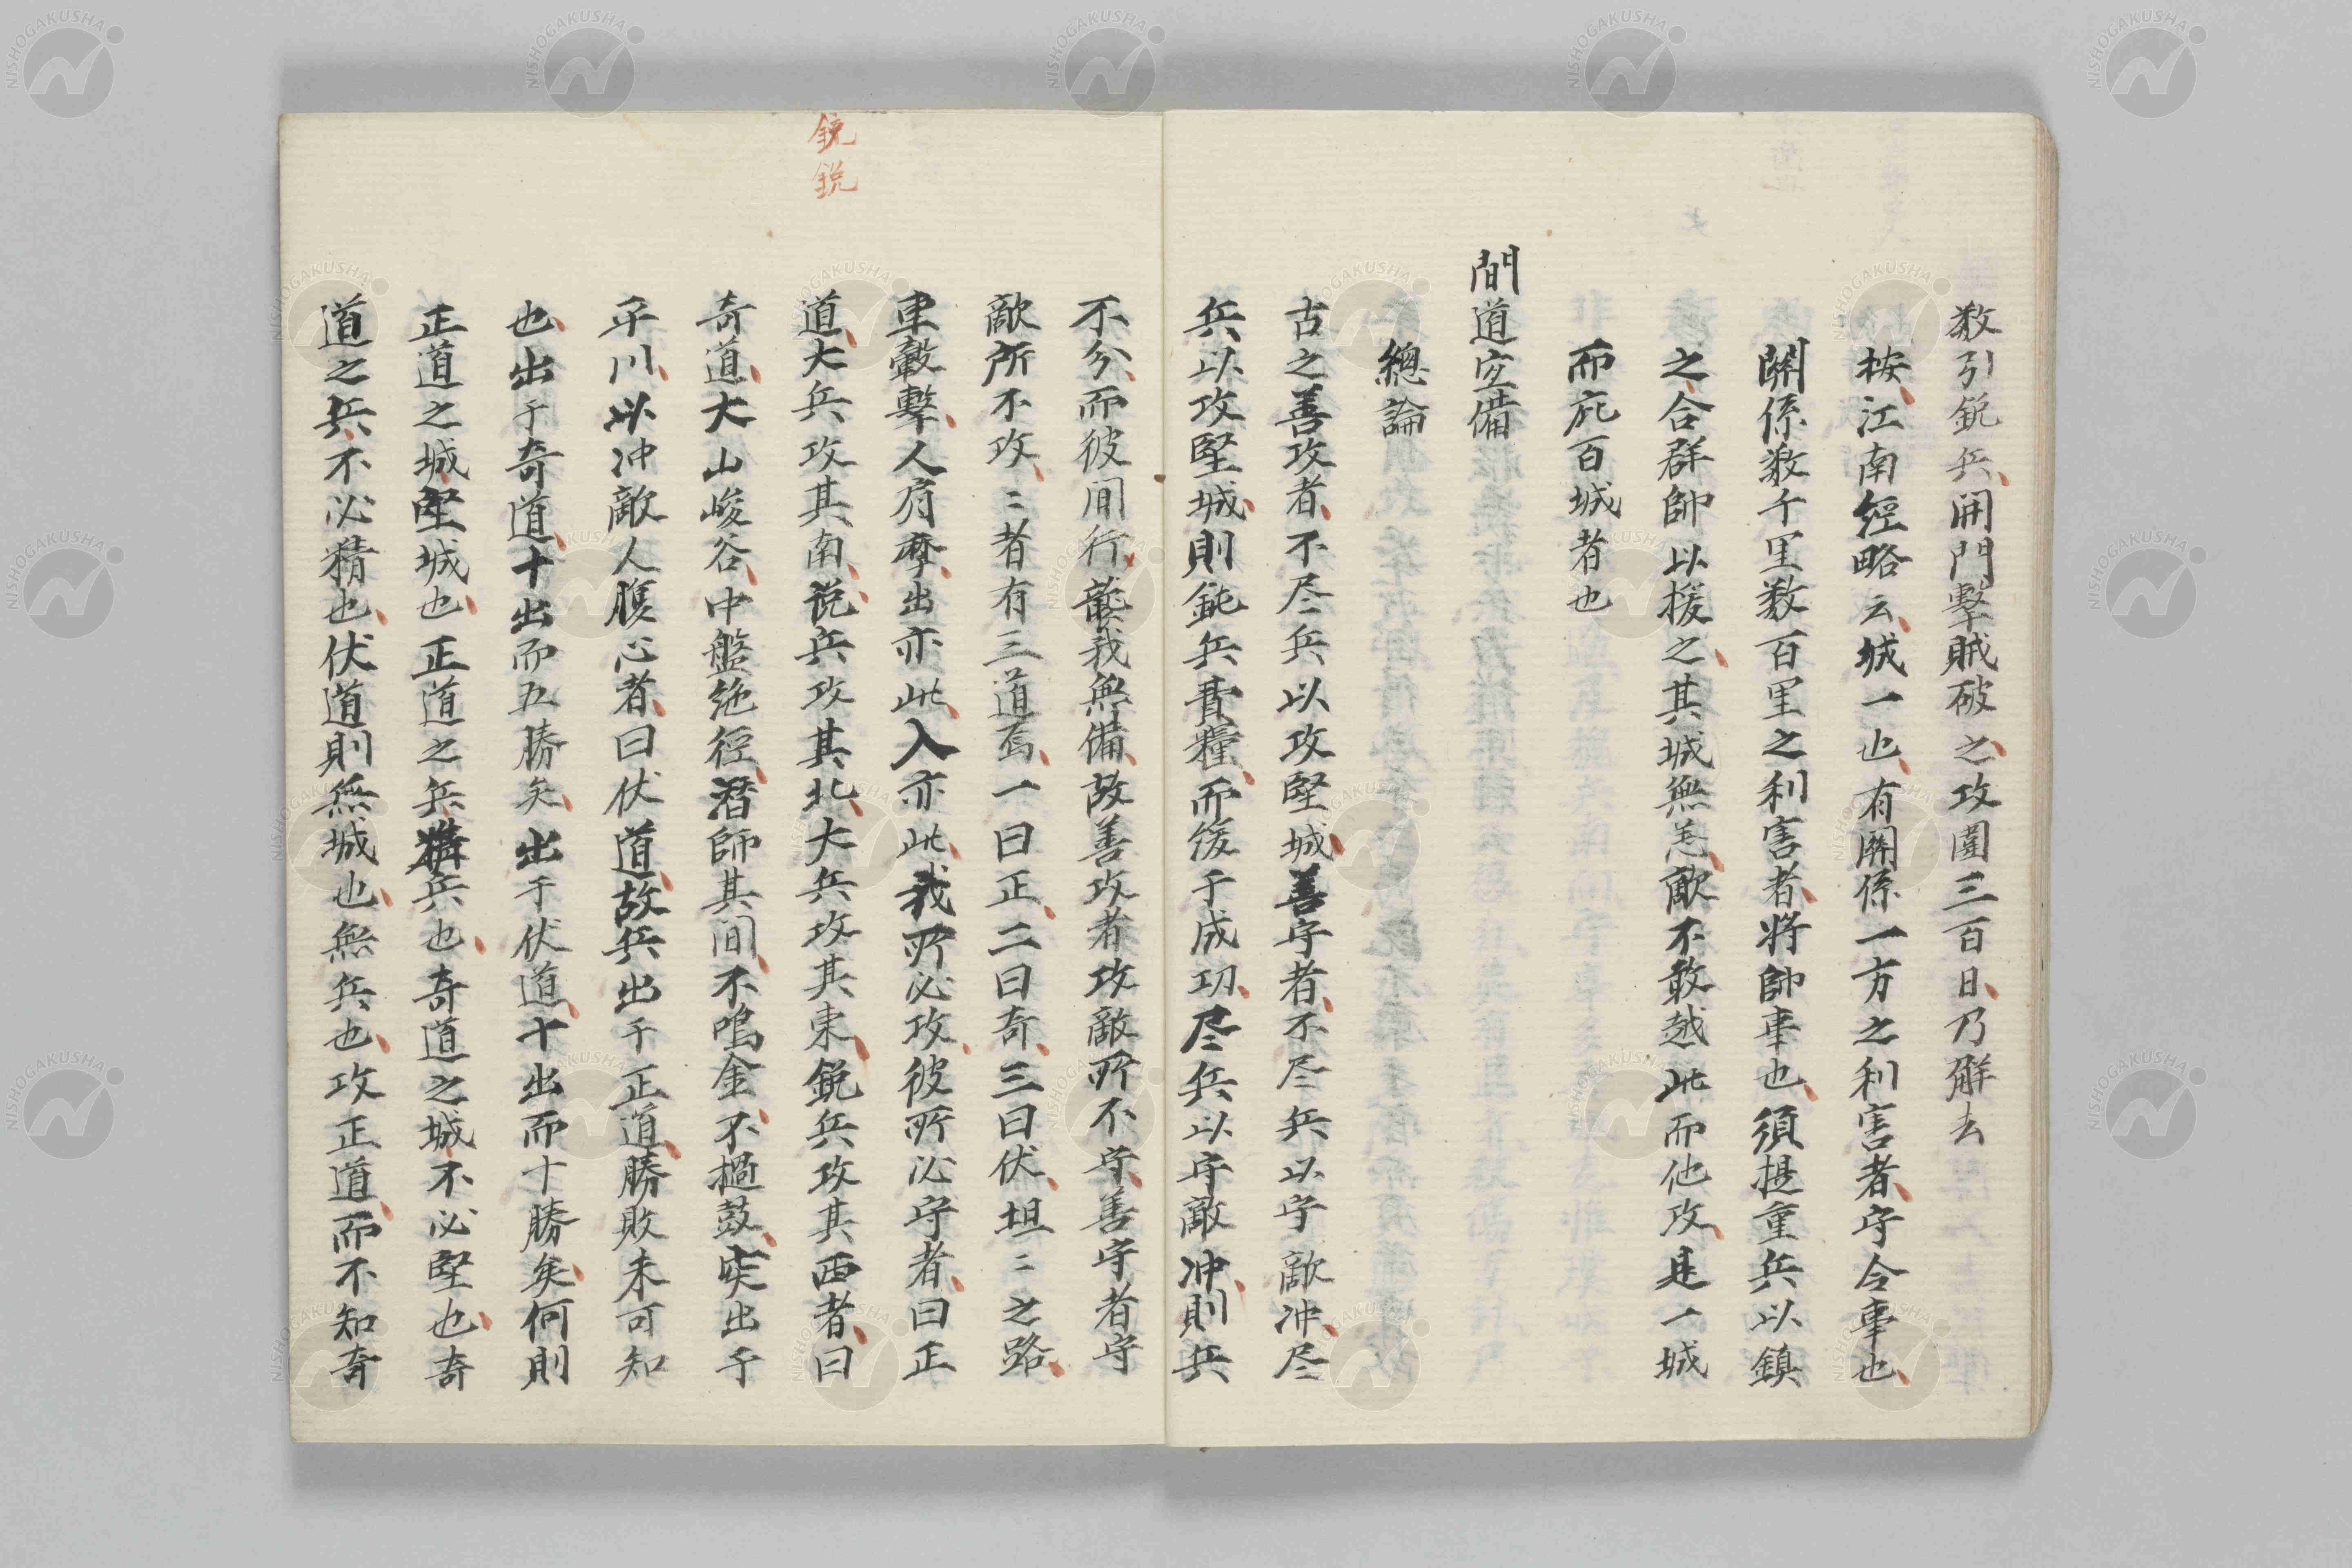 数引銳兵開門擊賊破之攻圍三百日乃解去
按江南經略云城一也有關係一方之利害者守令事也
關係数千里数百里之利害者将帥事也須提重兵以鎮
之合群帥以援之其城無恙敵不敢越此而他攻是一城
而庇百城者也
間道定備
總論
古之善攻者不尽兵以攻堅城善守者不尽兵以守敵冲尽
兵以攻堅城則鈍兵費糧而後于成功尽兵以守敵冲則兵
不分而彼間行襲我無備故善攻者攻敵所不守善守者守
敵所不攻〻者有三道焉一曰正二曰奇三曰伏坦〻之路
車轂擊人肩摩出亦此入亦此我所必攻彼所必守者曰正
道大兵攻其南説兵攻其北大兵攻其東鋭兵攻其西者曰
奇道大山峻谷中盤絶径潜師其間不鳴金不撾鼓突出乎
平川以冲敵人腹心者曰伏道故兵出于正道勝敗未可知
也出于奇道十出而五勝矣出于伏道十出而十勝矣何則
正道之城堅城也正道之兵精兵也奇道之城不必堅也奇
道之兵不必精也伏道則無城也無兵也攻正道而不知奇
銃
鋭
NISHOGAKUSHA